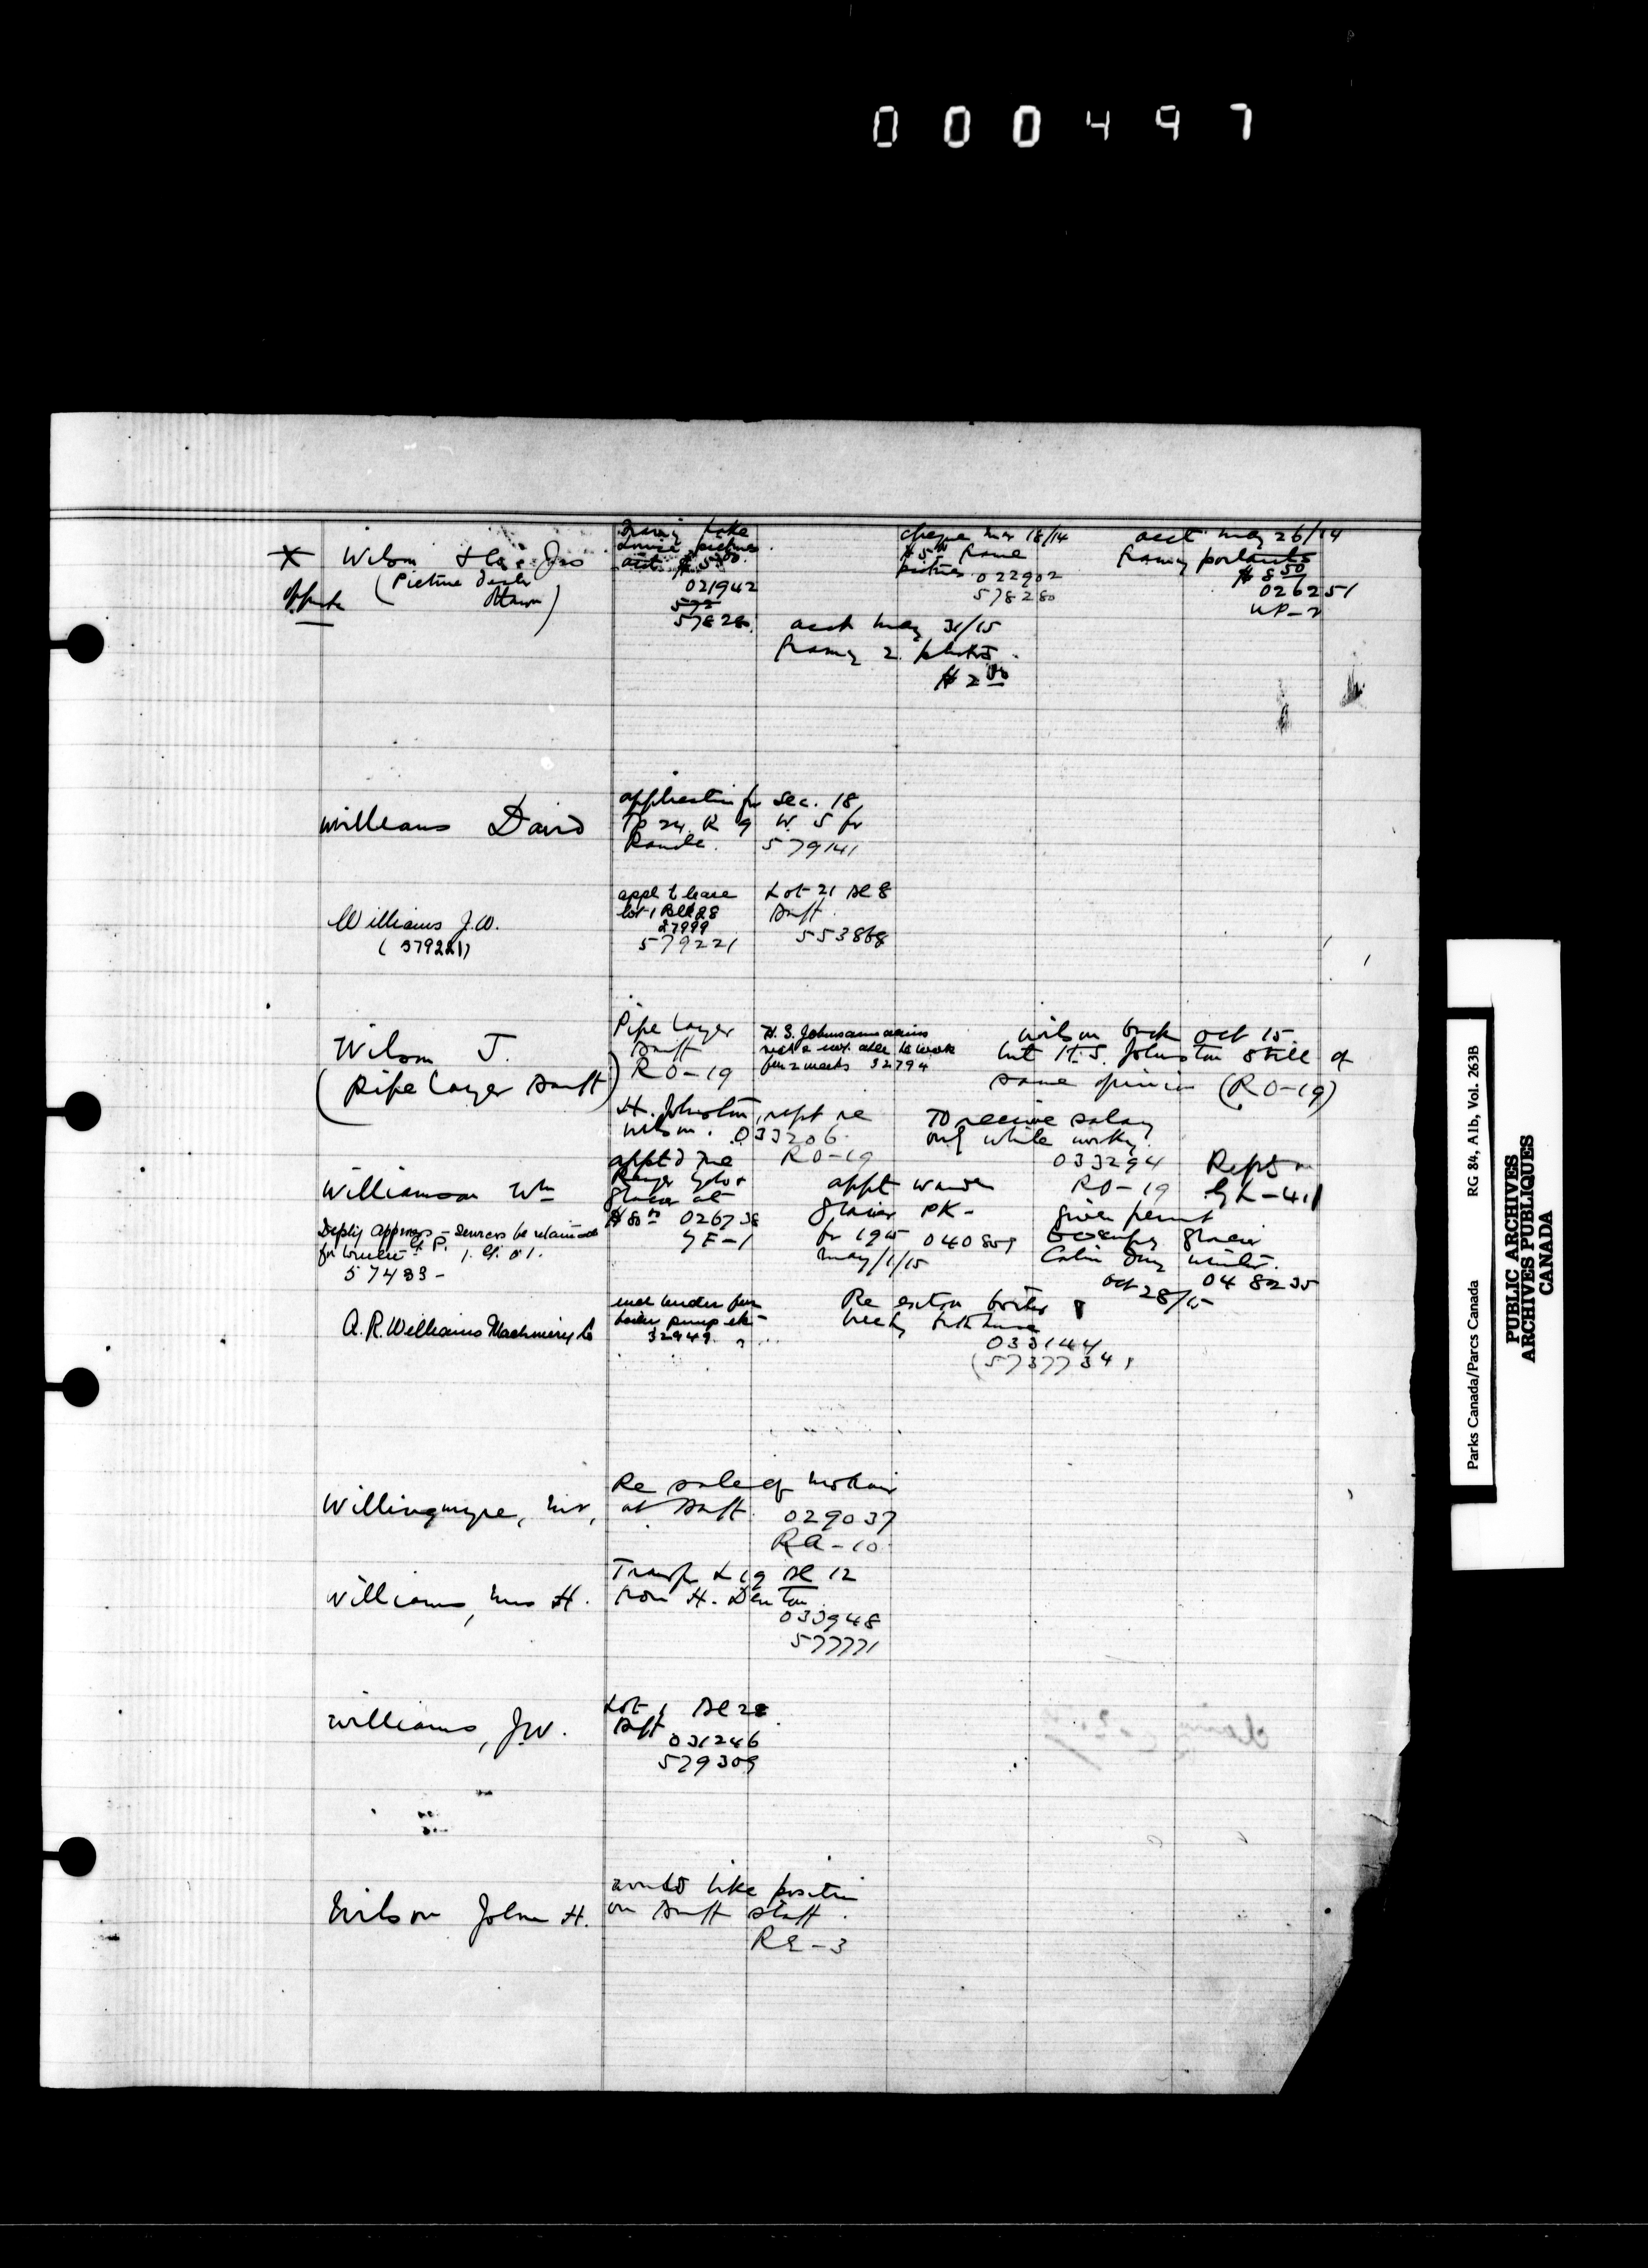 000497
X Wilson & Co. Jas
(Picture dealer
Ottawa)
opposite
Framing Lake
Louise pictures
acct. $5.00
021942
578280
cheque Mar 18/14
$5.00 frame
pictures 022902
578280
acct May 26/14
framing portraits
$8.50
026251
UP-2
acct May 31/15
framing 2 photos.
$2.00
Williams David
application for Sec. 18,
Tp 24 R 9 W. 5 for
Ranche. 579141
Williams J.W.
(579221)
appl to lease
lot 1 Blk 28
27999
579221
Lot 21 Bl 8
Banff.
553868
Wilson J.
(Pipe Layer Banff)
Pipe Layer
Banff
RO-19
H. S. Johnson
not able to work
for 2 weeks 32794
Wilson back Oct 15
but H.S. Johnston still of
same opinion (RO-19)
H. Johnston, rept re
Wilson. 033206
RO-19
To receive salary
only while working
033294
RO-19
Williamson Wm
apptd
Ranger Yoho &
Glacier at
$80.00 026738
GE-1
appt warden
Glacier PK-
for 1915 040859
May/1/15
Repts on
GK-41
given permit
to occupy Glacier
Cabin during winter.
048235
Oct 28/15
Deputy approves - services be retained
for winter G.P.
57433-
A.R. Williams Machinery Co
boiler pump etc-
32949
Re extra boiler
033144
(5737734)
Willingmyre, Mr,
Re sale of
at Banff. 029037
RA-10
Williams, Mrs H.
Transfer L 19 Bl 12
from H. Denton.
033948
577771
Williams, J.W.
Lot 1 Bl 28
Banff
031246
579309
Wilson John H.
would like position
on Banff staff.
RE-3
Parks Canada/Parcs Canada RG 84, A1b, Vol. 263B
PUBLIC ARCHIVES
ARCHIVES PUBLIQUES
CANADA